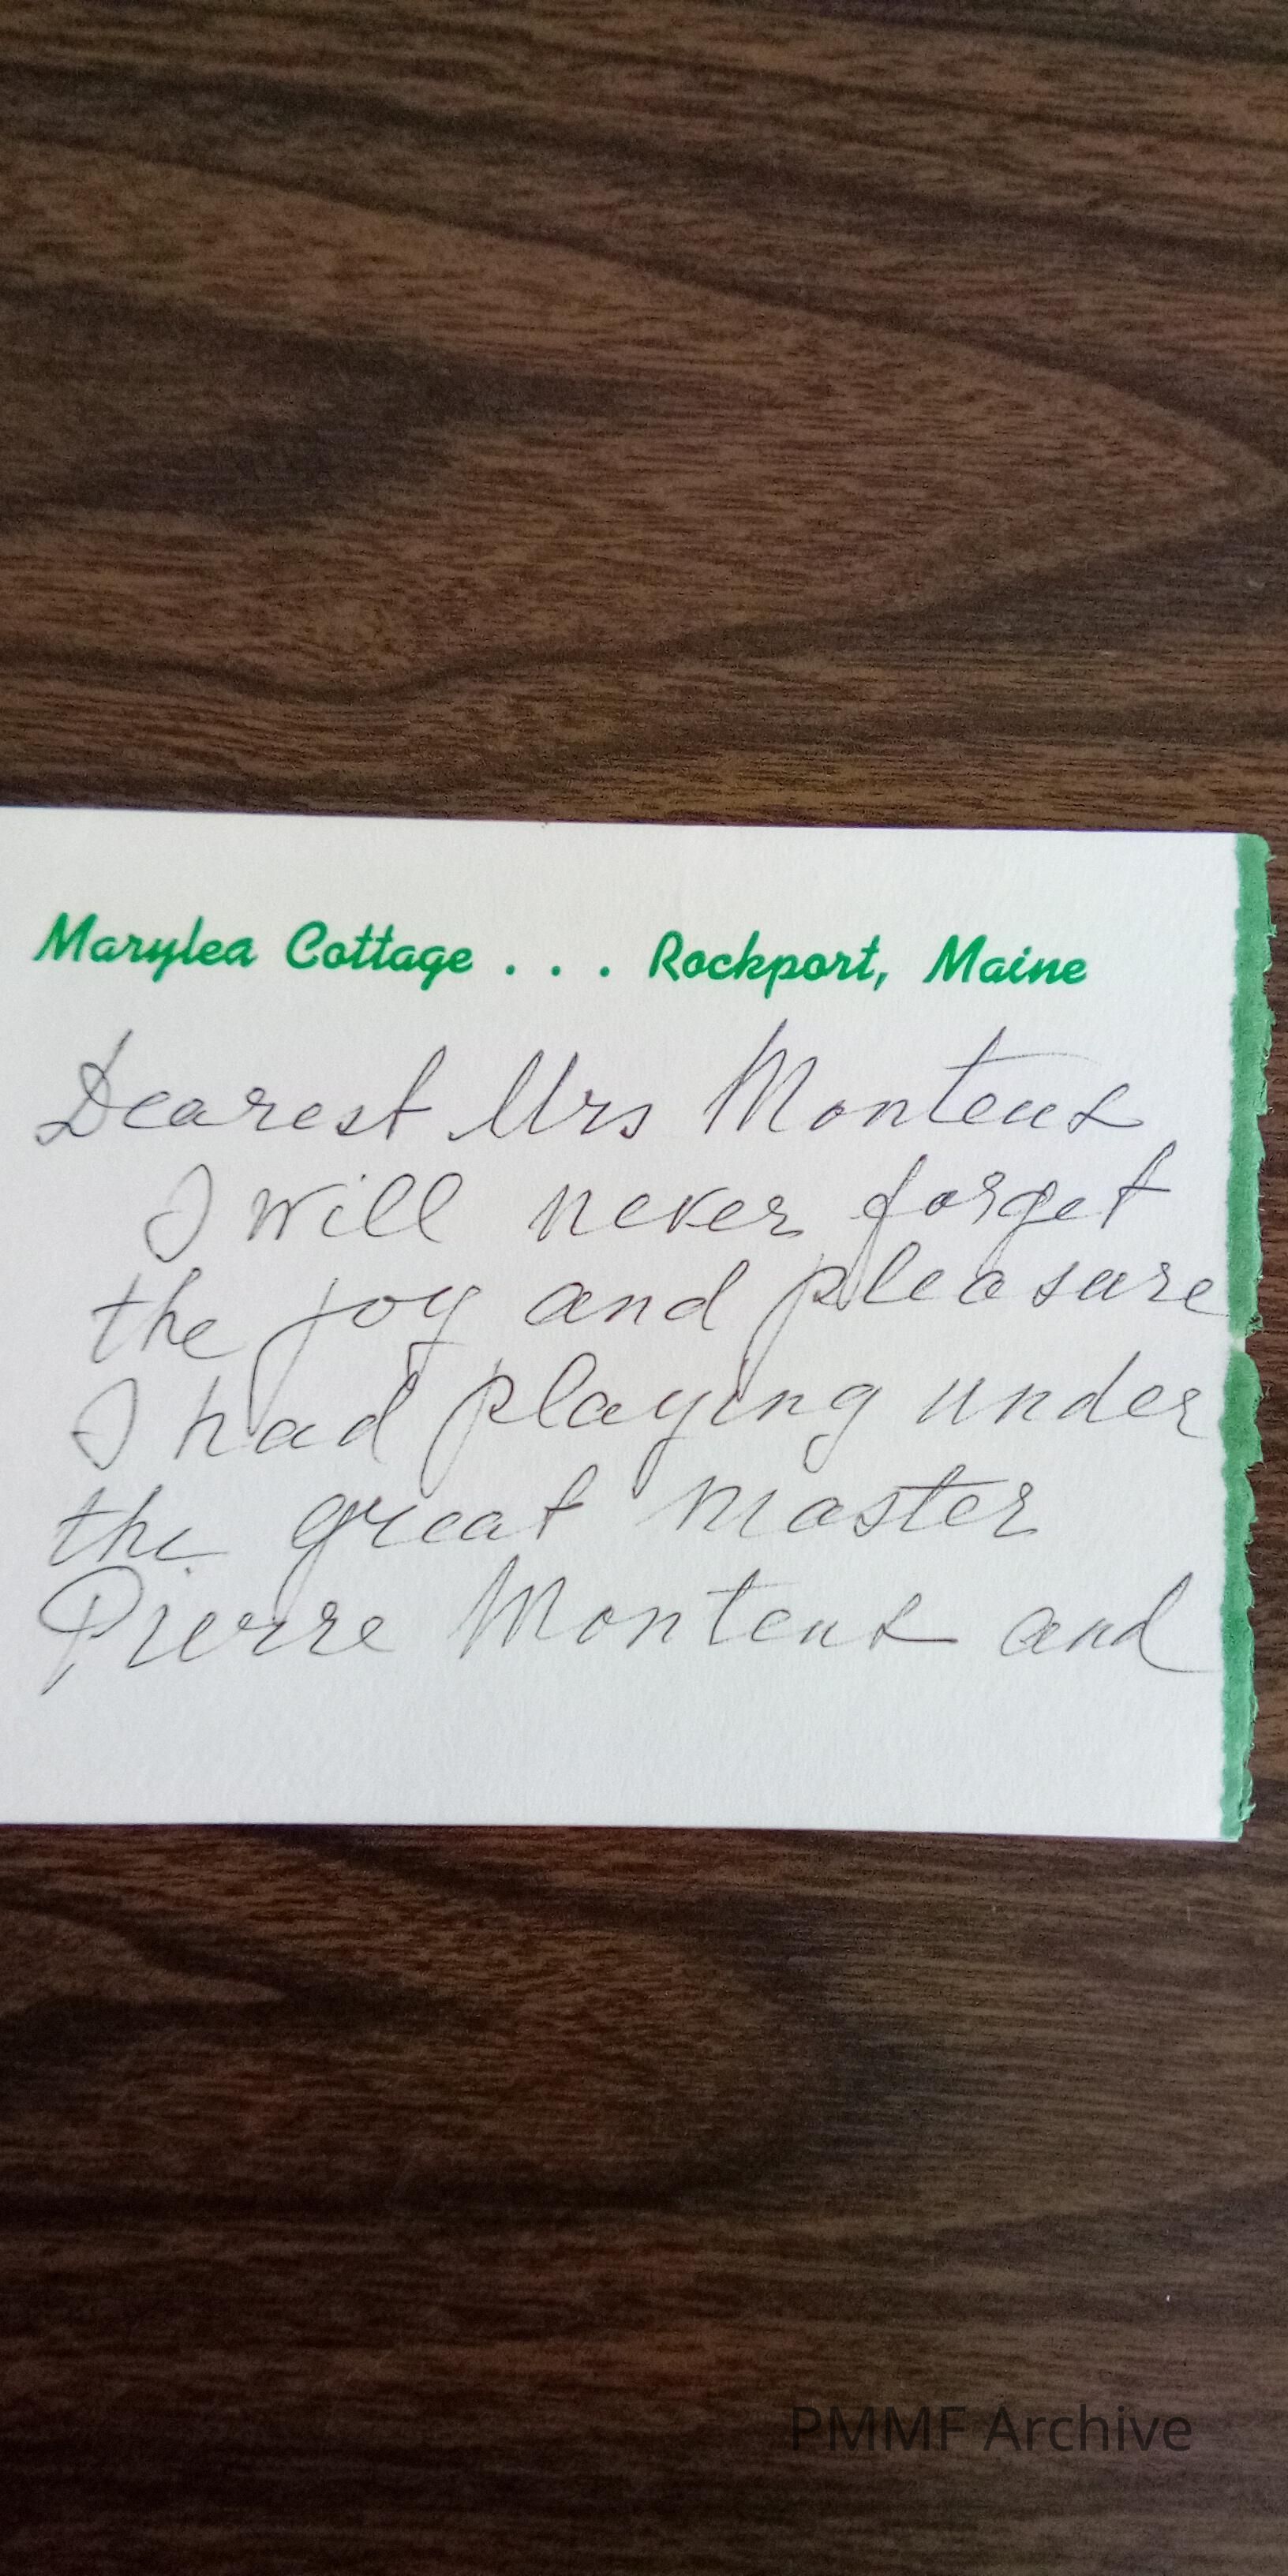 Marylea Cottage . . . Rockport, Maine
Dearest Mrs Monteux
I will never forget
the joy and pleasure
I had playing under
the great master
Pierre Monteux and
PMMF Archive